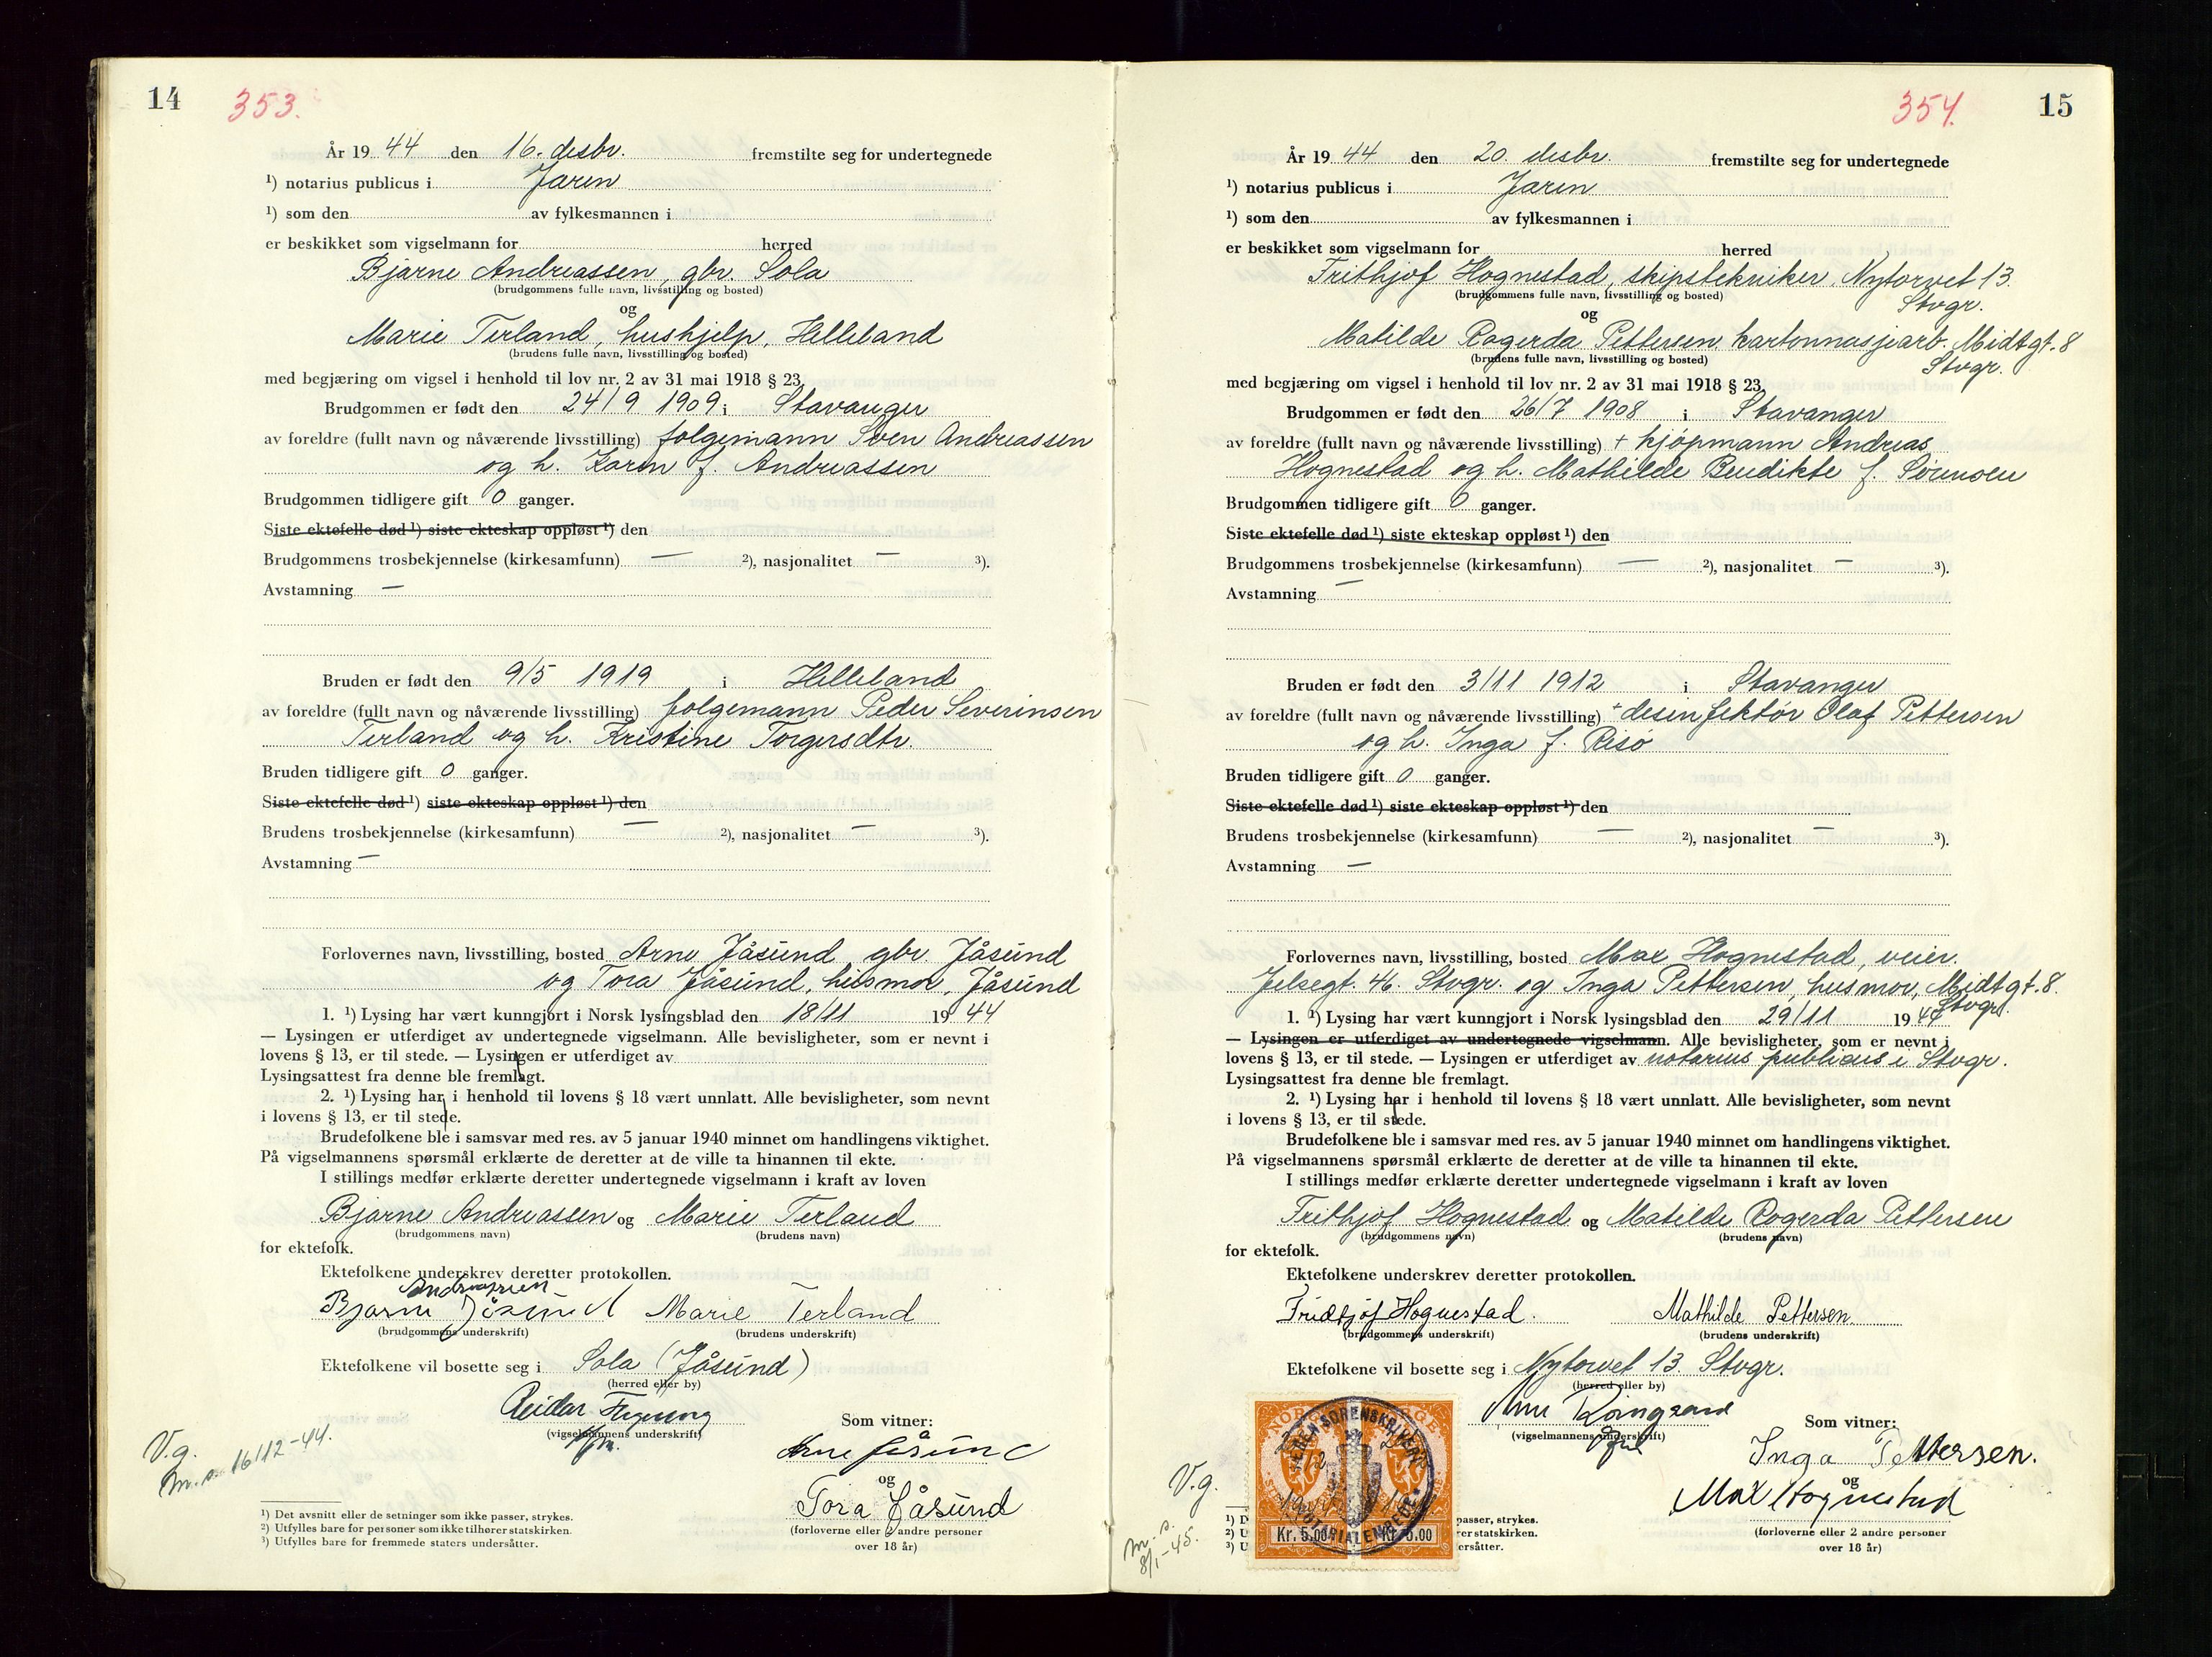 14
353.
År 1944 den 16. desbr. fremstilte seg for undertegnede
¹) notarius publicus i Jæren
¹) som den av fylkesmannen i
er beskikket som vigselmann for herred
Bjarne Andreassen, gbr. Sola
(brudgommens fulle navn, livsstilling og bosted)
og
Marie Terland, hushjelp, Helleland
(brudens fulle navn, livsstilling og bosted)
med begjæring om vigsel i henhold til lov nr. 2 av 31 mai 1918 § 23.
Brudgommen er født den 24/9 1909 i Stavanger
av foreldre (fullt navn og nåværende livsstilling) følgemann Sven Andreassen
og h. Karen f. Andreassen
Brudgommen tidligere gift 0 ganger.
Siste ektefelle død ¹) siste ekteskap oppløst ¹) den
Brudgommens trosbekjennelse (kirkesamfunn) — ²), nasjonalitet — ³).
Avstamning —
Bruden er født den 9/5 1919 i Helleland
av foreldre (fullt navn og nåværende livsstilling) følgemann Peder Severinsen
Terland og h. Kristine Torgersdtr.
Bruden tidligere gift 0 ganger.
Siste ektefelle død ¹) siste ekteskap oppløst ¹) den
Brudens trosbekjennelse (kirkesamfunn) — ²), nasjonalitet — ³).
Avstamning —
Forlovernes navn, livsstilling, bosted Arne Jåsund, gbr. Jåsund
og Tora Jåsund, husmor, Jåsund
1. ¹) Lysing har vært kunngjort i Norsk lysingsblad den 18/11 1944
— Lysingen er utferdiget av undertegnede vigselmann. Alle bevisligheter, som er nevnt i
lovens § 13, er til stede. — Lysingen er utferdiget av
Lysingsattest fra denne ble fremlagt.
2. ¹) Lysing har i henhold til lovens § 18 vært unnlatt. Alle bevisligheter, som nevnt
i lovens § 13, er til stede.
Brudefolkene ble i samsvar med res. av 5 januar 1940 minnet om handlingens viktighet.
På vigselmannens spørsmål erklærte de deretter at de ville ta hinannen til ekte.
I stillings medfør erklærte deretter undertegnede vigselmann i kraft av loven
Bjarne Andreassen og Marie Terland
(brudgommens navn) (brudens navn)
for ektefolk.
Ektefolkene underskrev deretter protokollen.
Andreassen
Bjarne Jåsund Marie Terland
(brudgommens underskrift) (brudens underskrift)
Ektefolkene vil bosette seg i Sola (Jåsund)
(herred eller by)
Reidar
(vigselmannens underskrift)
Som vitner:
Arne Jåsund
og
Tora Jåsund
(forloverne eller 2 andre personer
over 18 år)
V.g.
m. s. 16/12-44.
¹) Det avsnitt eller de setninger som ikke passer, strykes.
²) Utfylles bare for personer som ikke tilhører statskirken.
³) Utfylles bare for fremmede staters undersåtter.
15
354.
År 1944 den 20. desbr. fremstilte seg for undertegnede
¹) notarius publicus i Jæren
¹) som den av fylkesmannen i
er beskikket som vigselmann for herred
Frithjof Hognestad, skipstekniker, Nytorvet 13
Stvgr.
(brudgommens fulle navn, livsstilling og bosted)
og
Matilde Rogerda Pettersen, kartonnasjearb. Midtgt. 8
Stvgr.
(brudens fulle navn, livsstilling og bosted)
med begjæring om vigsel i henhold til lov nr. 2 av 31 mai 1918 § 23.
Brudgommen er født den 26/7 1908 i Stavanger
av foreldre (fullt navn og nåværende livsstilling) + kjøpmann Andreas
Hognestad og h. Mathilde Bendikte f. Sørensen
Brudgommen tidligere gift 0 ganger.
Siste ektefelle død ¹) siste ekteskap oppløst ¹) den
Brudgommens trosbekjennelse (kirkesamfunn) — ²), nasjonalitet — ³).
Avstamning —
Bruden er født den 3/11 1912 i Stavanger
av foreldre (fullt navn og nåværende livsstilling) + desinfektør Olaf Pettersen
og h. Inga f. Risø
Bruden tidligere gift 0 ganger.
Siste ektefelle død ¹) siste ekteskap oppløst ¹) den
Brudens trosbekjennelse (kirkesamfunn) — ²), nasjonalitet — ³).
Avstamning —
Forlovernes navn, livsstilling, bosted Max Hognestad, veier.
Jelsegt. 46. Stvgr. og Inga Pettersen, husmor, Midtgt. 8.
Stvgr.
1. ¹) Lysing har vært kunngjort i Norsk lysingsblad den 29/11 1944
— Lysingen er utferdiget av undertegnede vigselmann. Alle bevisligheter, som er nevnt i
lovens § 13, er til stede. — Lysingen er utferdiget av notarius publicus i Stvgr.
Lysingsattest fra denne ble fremlagt.
2. ¹) Lysing har i henhold til lovens § 18 vært unnlatt. Alle bevisligheter, som nevnt
i lovens § 13, er til stede.
Brudefolkene ble i samsvar med res. av 5 januar 1940 minnet om handlingens viktighet.
På vigselmannens spørsmål erklærte de deretter at de ville ta hinannen til ekte.
I stillings medfør erklærte deretter undertegnede vigselmann i kraft av loven
Frithjof Hognestad og Matilde Rogerda Pettersen
(brudgommens navn) (brudens navn)
for ektefolk.
Ektefolkene underskrev deretter protokollen.
Fridtjof Hognestad. Mathilde Pettersen.
(brudgommens underskrift) (brudens underskrift)
Ektefolkene vil bosette seg i Nytorvet 13. Stvgr.
(herred eller by)
(vigselmannens underskrift)
Som vitner:
Inga Pettersen.
og
Max Hognestad
(forloverne eller 2 andre personer
over 18 år)
V.g.
m. s.
8/1-45.
NORGE
Kr. 5.00 Kr. 5.00
JÆREN SORENSKRIVERI
NOTARIALEMBEDE
¹) D passer, strykes.
²) U rer statskirken.
³) U ersåtter.